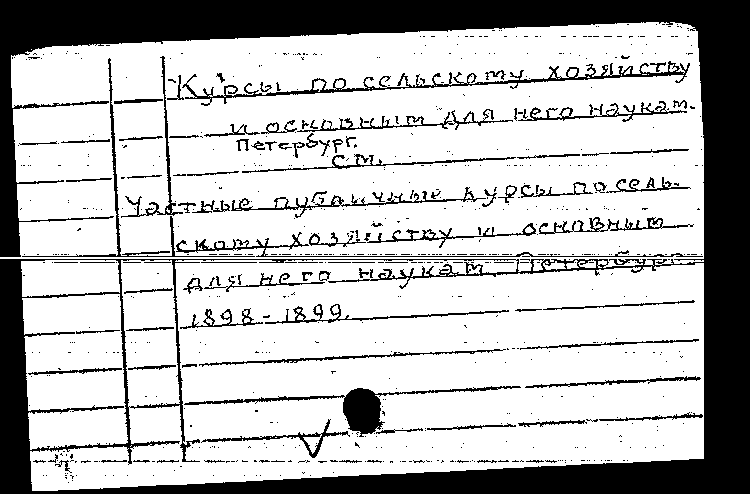 Курсы по сельскому хозяйству
и основным для него наукам.
Петербург.
см.
Частные публичные курсы по сель-
скому хозяйству и основным
для него наукам. Петербург.
1898-1899.